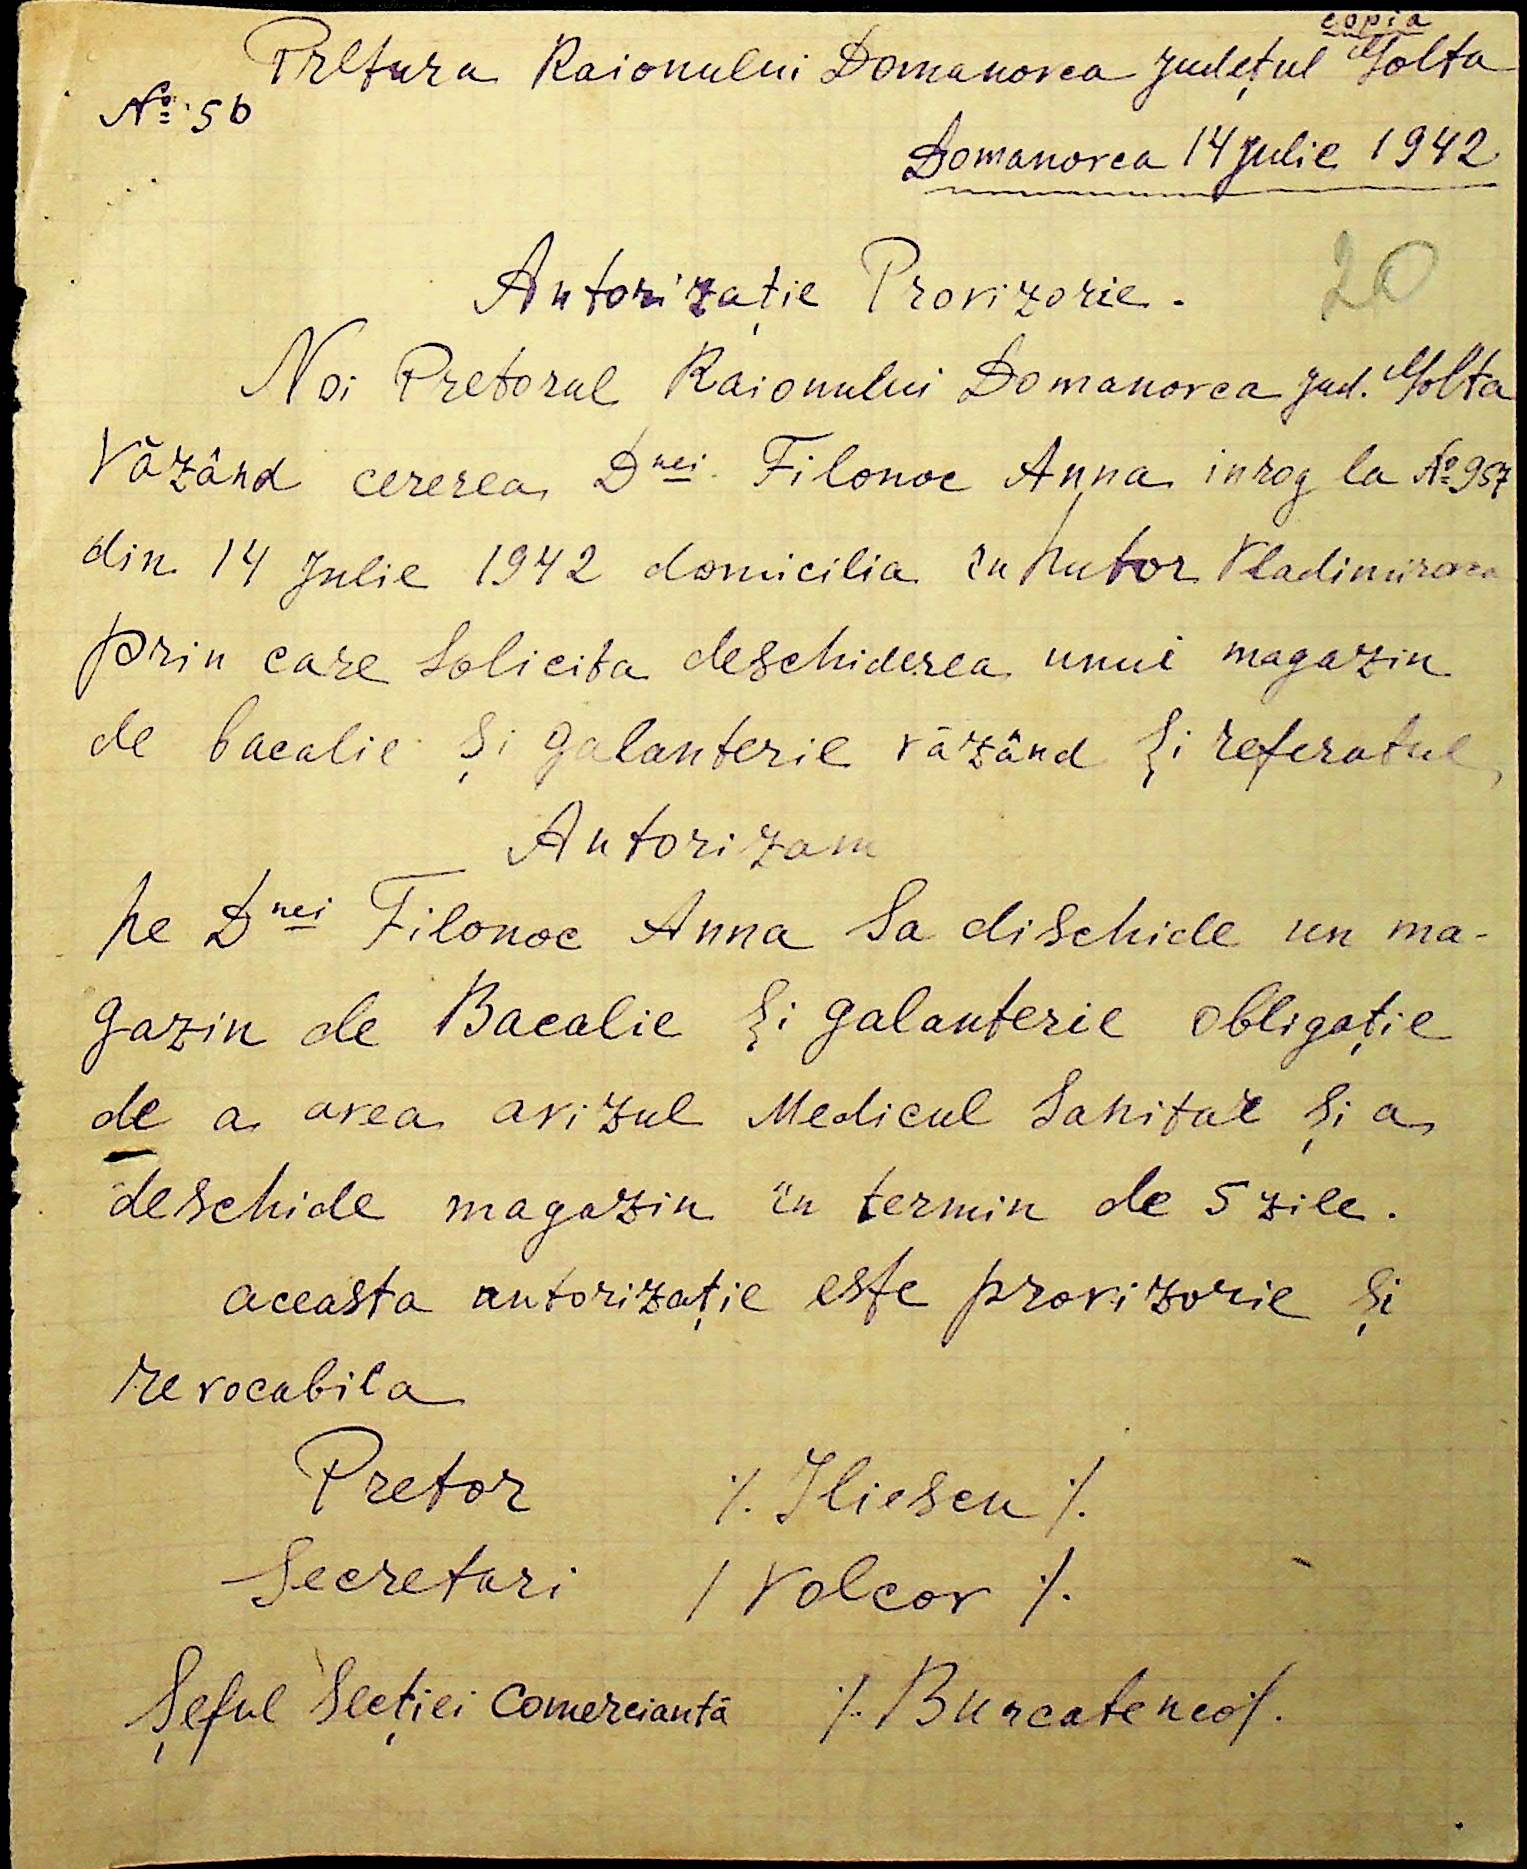 copia
Pretura Raionului Domanovca județul Golta
№ 56
Domanovca 14 Julie 1942
Autorizație Provizorie.
20
Noi Pretorul Raionului Domanovca jud. Golta
Văzând cererea Dnei Filonoc Anna inrog la № 957
din 14 Julie 1942 domicilia în hutor Vladimirovca
prin care solicita deschiderea unui magazin
de bacalie și galanterie văzând și referatul,
Autorizam
pe Dnei Filonoc Anna sa dischide un ma-
gazin de Bacalie și galanterie obligație
de a avea avizul Medicul Sanitar și a
deschide magazin în termin de 5 zile.
aceasta autorizație este provizorie și
revocabila
Pretor /. Iliescu /.
Secretari / Volcov /.
Șeful Secției Comerciantă /. Burcatenco /.